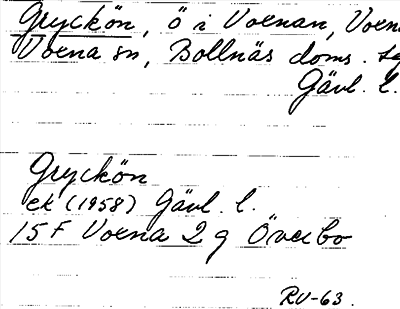 Gryckön, ö i Voxnan, Voxna
Voxna sn, Bollnäs doms. sg
Gävl. l.
Gryckön
ek (1958) Gävl. l.
15 F Voxna 2 g Överbo
RV-63.